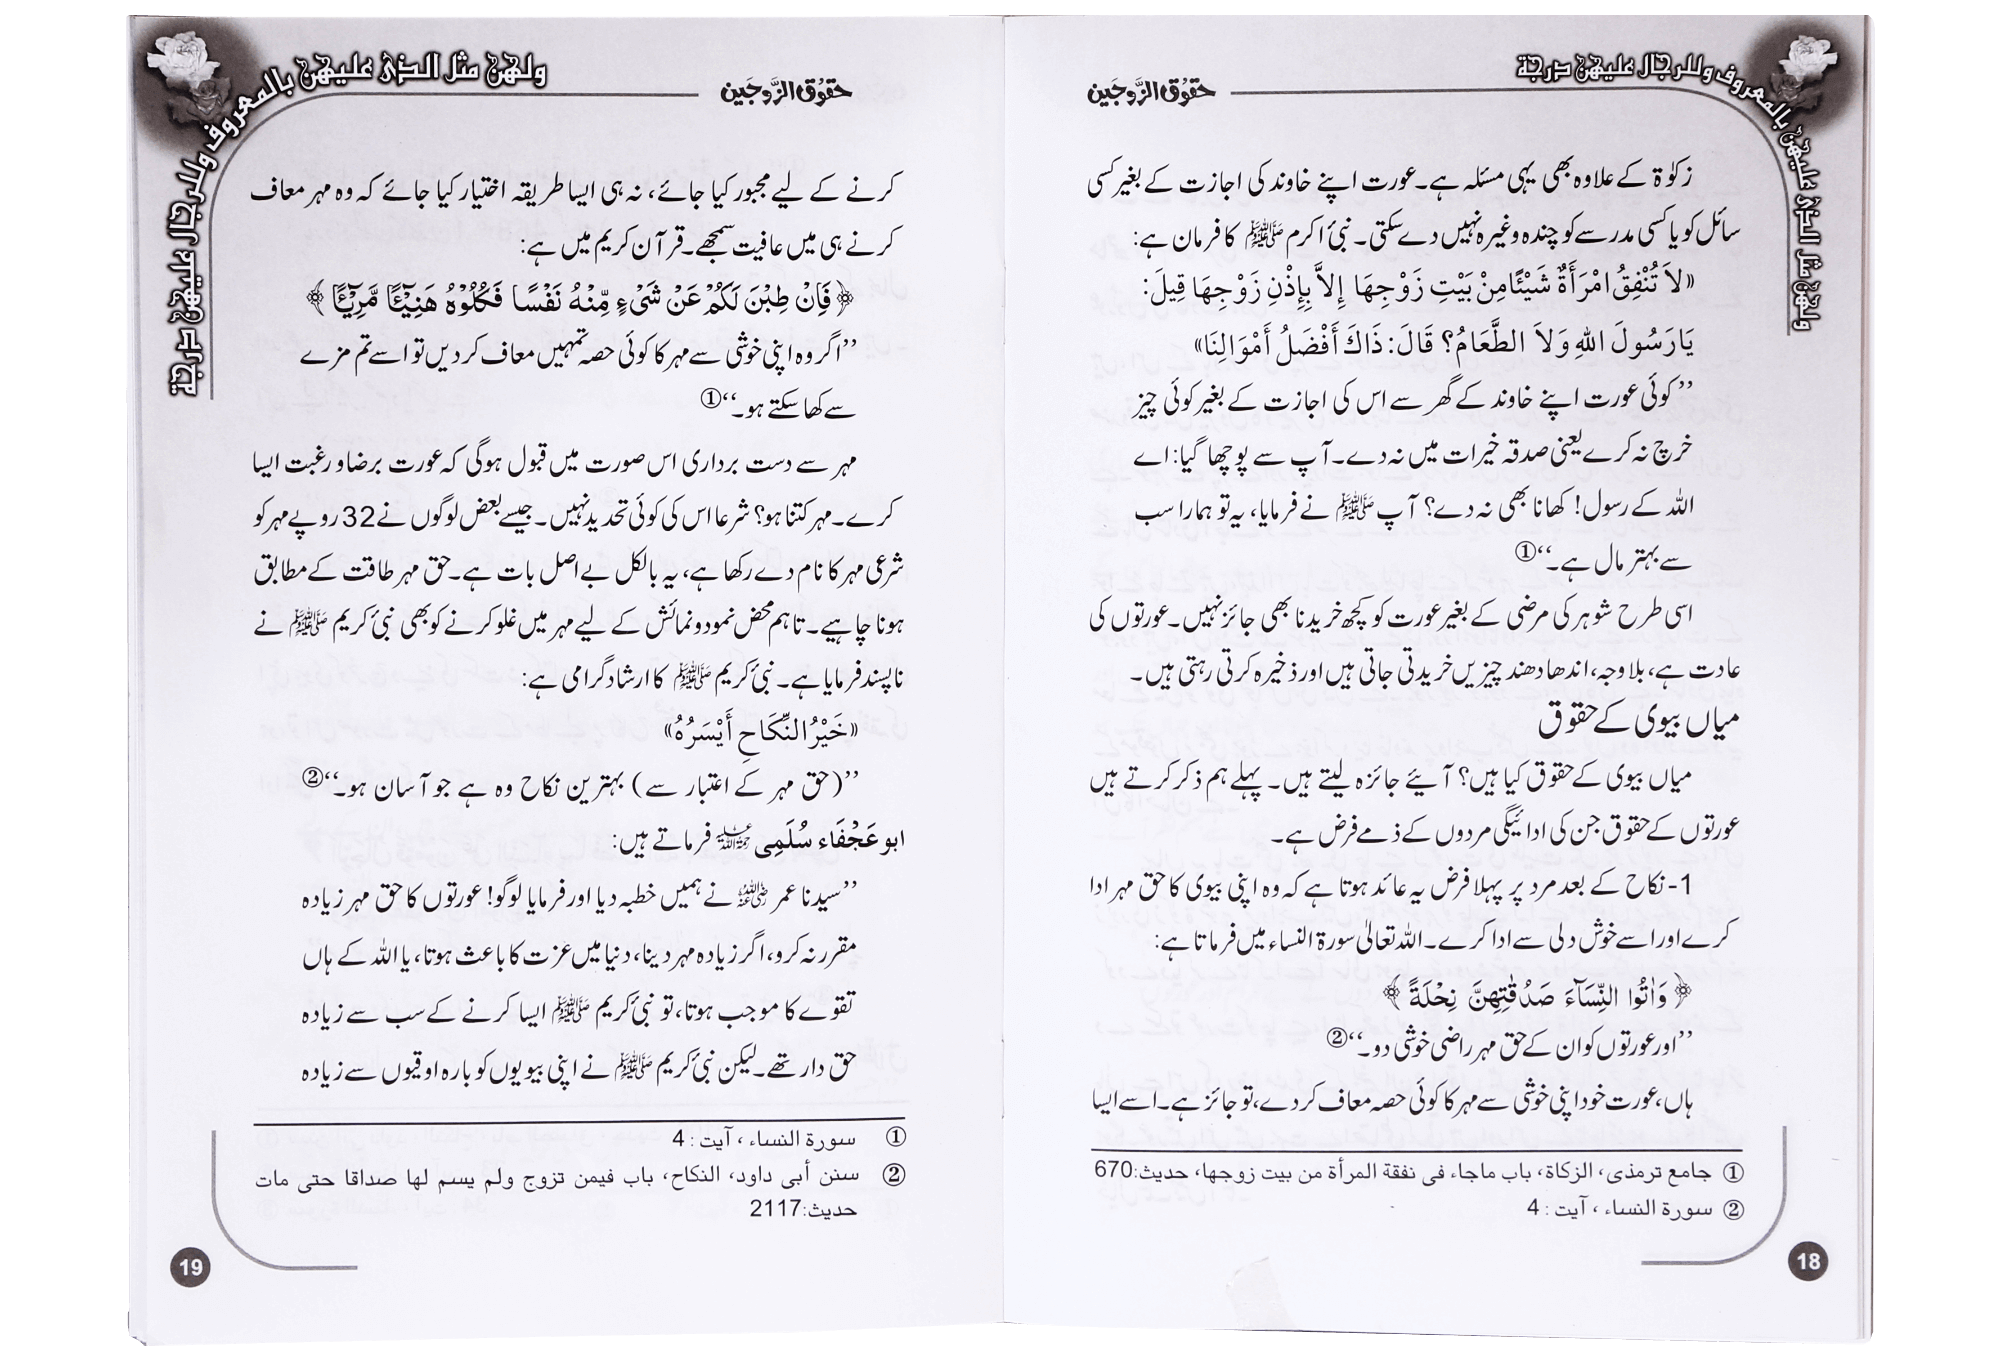 ولهن مثل الذى عليهن بالمعروف وللرجال عليهن درجة
حقوق الزَّوجَین
زکوٰۃ کے علاوہ بھی یہی مسئلہ ہے۔ عورت اپنے خاوند کی اجازت کے بغیر کسی
سائل کو یا کسی مدرسے کو چندہ وغیرہ نہیں دے سکتی۔ نبیٔ اکرم ﷺ کا فرمان ہے:
«لاَ تُنْفِقُ امْرَأَةٌ شَيْئًا مِنْ بَيْتِ زَوْجِهَا إِلاَّ بِإِذْنِ زَوْجِهَا قِيلَ:
يَارَسُولَ اللهِ وَلاَ الطَّعَامُ؟ قَالَ: ذَاكَ أَفْضَلُ أَمْوَالِنَا»
’’کوئی عورت اپنے خاوند کے گھر سے اس کی اجازت کے بغیر کوئی چیز
خرچ نہ کرے یعنی صدقہ خیرات میں نہ دے۔ آپ سے پوچھا گیا: اے
اللہ کے رسول! کھانا بھی نہ دے؟ آپ ﷺ نے فرمایا، یہ تو ہمارا سب
سے بہتر مال ہے۔‘‘①
اسی طرح شوہر کی مرضی کے بغیر عورت کو کچھ خریدنا بھی جائز نہیں۔ عورتوں کی
عادت ہے، بلاوجہ، اندھا دھند چیزیں خریدتی جاتی ہیں اور ذخیرہ کرتی رہتی ہیں۔
میاں بیوی کے حقوق
میاں بیوی کے حقوق کیا ہیں؟ آیئے جائزہ لیتے ہیں۔ پہلے ہم ذکر کرتے ہیں
عورتوں کے حقوق جن کی ادائیگی مردوں کے ذمے فرض ہے۔
1- نکاح کے بعد مرد پر پہلا فرض یہ عائد ہوتا ہے کہ وہ اپنی بیوی کا حق مہر ادا
کرے اور اسے خوش دلی سے ادا کرے۔ اللہ تعالیٰ سورۃ النساء میں فرماتا ہے:
﴿وَاٰتُوا النِّسَآءَ صَدُقٰتِهِنَّ نِحْلَةً﴾
’’اور عورتوں کو ان کے حق مہر راضی خوشی دو۔‘‘②
ہاں، عورت خود اپنی خوشی سے مہر کا کوئی حصہ معاف کر دے، تو جائز ہے۔ اسے ایسا
① جامع ترمذی، الزکاۃ، باب ماجاء فی نفقة المرأة من بیت زوجها، حدیث:670
② سورة النساء ، آیت : 4
18
ولهن مثل الذى عليهن بالمعروف وللرجال عليهن درجة
حقوق الزَّوجَین
کرنے کے لیے مجبور کیا جائے، نہ ہی ایسا طریقہ اختیار کیا جائے کہ وہ مہر معاف
کرنے ہی میں عافیت سمجھے۔ قرآن کریم میں ہے:
﴿فَاِنْ طِبْنَ لَكُمْ عَنْ شَیْءٍ مِّنْهُ نَفْسًا فَكُلُوْهُ هَنِيْٓـًٔا مَّرِيْٓـًٔا﴾
’’اگر وہ اپنی خوشی سے مہر کا کوئی حصہ تمہیں معاف کر دیں تو اسے تم مزے
سے کھا سکتے ہو۔‘‘①
مہر سے دست برداری اس صورت میں قبول ہوگی کہ عورت برضا و رغبت ایسا
کرے۔ مہر کتنا ہو؟ شرعا اس کی کوئی تحدید نہیں۔ جیسے بعض لوگوں نے 32 روپے مہر کو
شرعی مہر کا نام دے رکھا ہے، یہ بالکل بے اصل بات ہے۔ حق مہر طاقت کے مطابق
ہونا چاہیے۔ تاہم محض نمود و نمائش کے لیے مہر میں غلو کرنے کو بھی نبیٔ کریم ﷺ نے
ناپسند فرمایا ہے۔ نبیٔ کریم ﷺ کا ارشاد گرامی ہے:
«خَيْرُ النِّكَاحِ أَيْسَرُهُ»
’’(حق مہر کے اعتبار سے) بہترین نکاح وہ ہے جو آسان ہو۔‘‘②
ابو عَجْفَاء سُلَمِی رحمہ اللہ فرماتے ہیں:
’’سیدنا عمر رضی اللہ عنہ نے ہمیں خطبہ دیا اور فرمایا لوگو! عورتوں کا حق مہر زیادہ
مقرر نہ کرو، اگر زیادہ مہر دینا، دنیا میں عزت کا باعث ہوتا، یا اللہ کے ہاں
تقوے کا موجب ہوتا، تو نبیٔ کریم ﷺ ایسا کرنے کے سب سے زیادہ
حق دار تھے۔ لیکن نبیٔ کریم ﷺ نے اپنی بیویوں کو بارہ اوقیوں سے زیادہ
① سورة النساء ، آیت : 4
② سنن أبی داود، النکاح، باب فیمن تزوج ولم یسم لها صداقا حتی مات
حدیث:2117
19